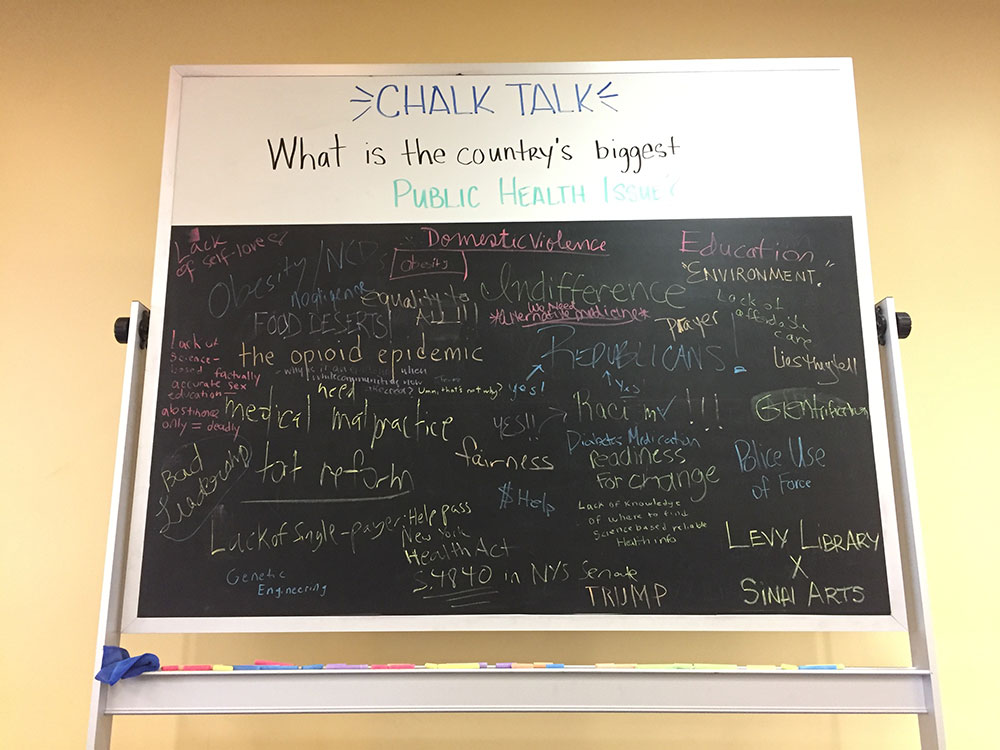 CHALK TALK
What is the country's biggest
PUBLIC HEALTH ISSUE?
Lack
of self-love
Obesity/NCDs
Domestic Violence
obesity
Education
"ENVIRONMENT."
Negligence
equality to
ALL!!!
Indifference
We Need
*alternative medicine*
Prayer
Lack of
affordable
care
FOOD DESERTS
Lies they tell
lack of
science-
based factually
accurate sex
education—
abstinence
only = deadly
the opioid epidemic
why is it an
when
white communities
Umm, that's not why?
REPUBLICANS.
yes!
Yes
need
medical malpractice
tort reform
yes!!
Racism ✓ !!!
Gentrification
Diabetes Medication
readiness
for change
Police Use
of Force
fairness
Bad
Leadership
$ Help
Lack of Knowledge
of where to find
science based reliable
Health info
Lack of Single-payer: Help pass
New York
Health Act
S.4840 in NYS Senate
Genetic
Engineering
TRUMP
LEVY LIBRARY
X
SINAI ARTS